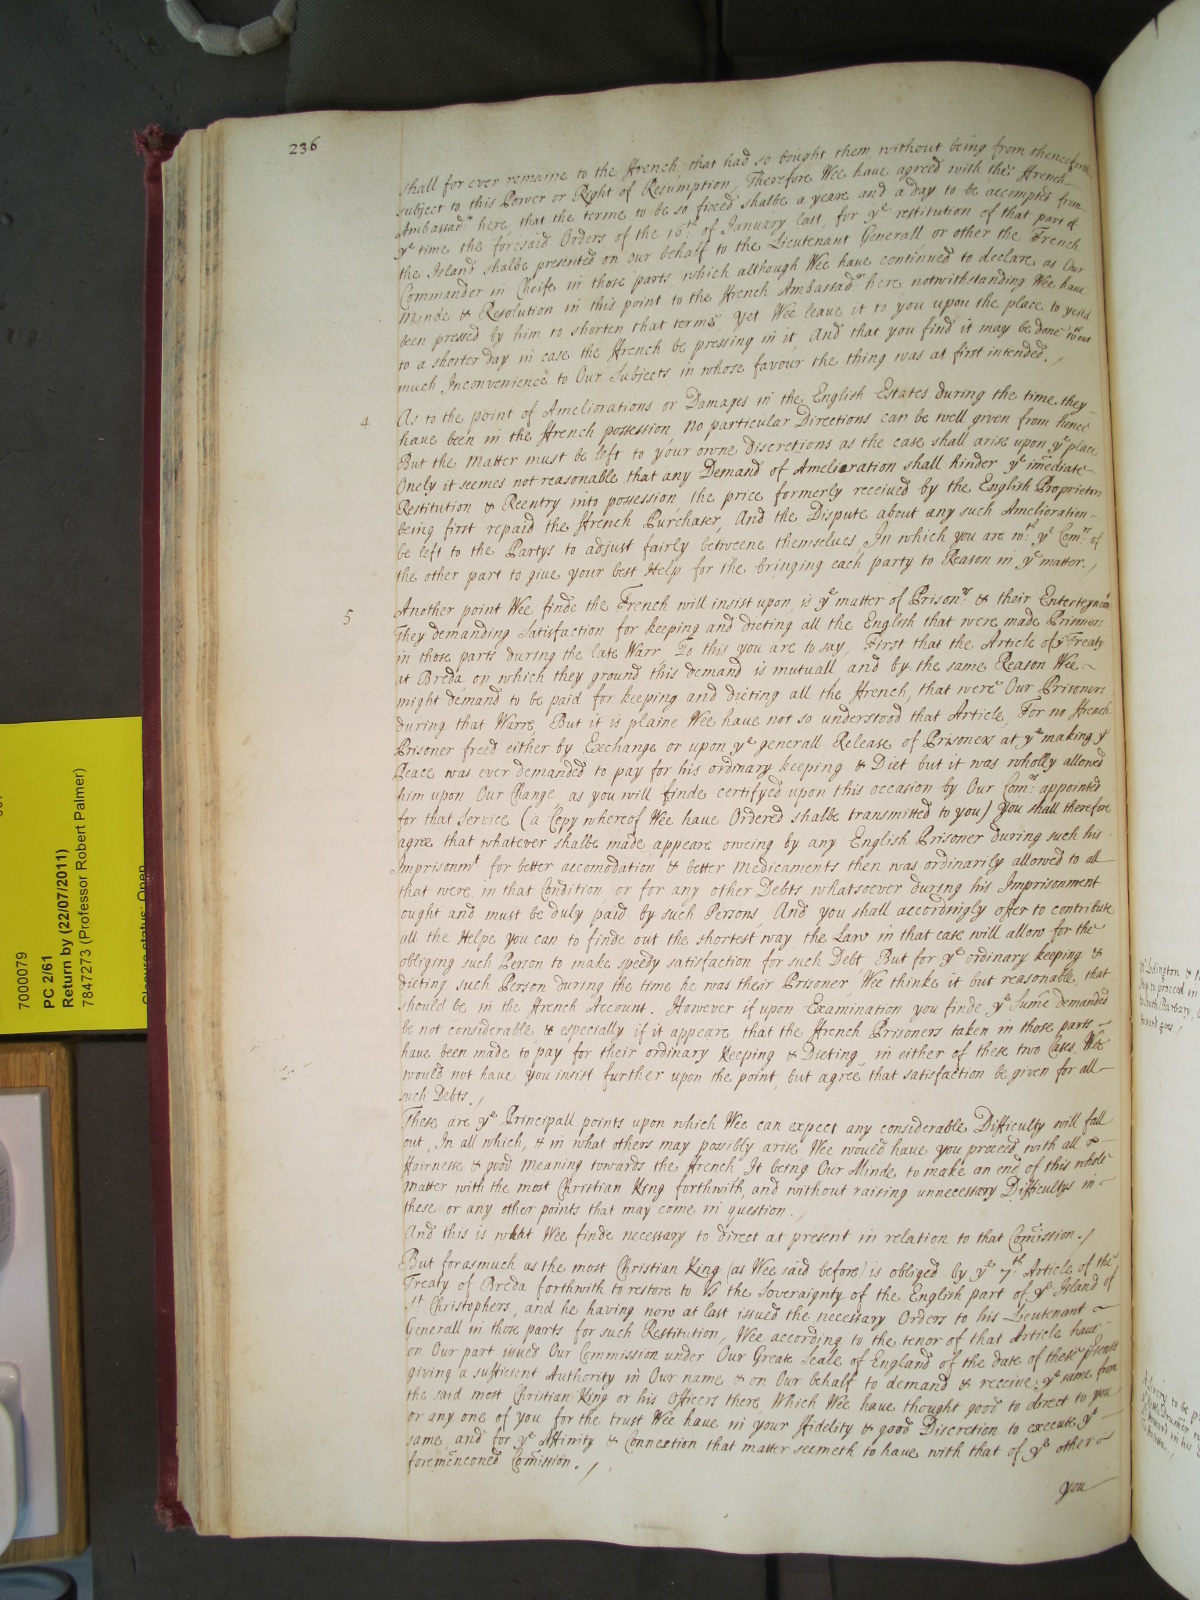 236
shall for ever remaine to the French, that had so bought them without being from thenceforth
subject to this Power or Right of Resumption, Therefore Wee have agreed with the French
Ambassadr here, that the terme to be so fixed shalbe a yeare and a day to be accompted from
ye time the foresaid Orders of the 16th of January last, for ye restitution of that part of
the Island shalbe presented on our behalf to the Lieutenant Generall or other the French
Commander in Cheife in those parts which although Wee have continued to declare as Our
Minde & Resolution in this point to the French Ambassadr here notwithstanding Wee have
been pressed by him to shorten that terme, yet Wee leave it to you upon the place to yeild
to a shorter day in case the French be pressing in it, And that you find it may be done wthout
much Inconvenience to Our Subjects in whose favour the thing was at first intended./
4
As to the point of Ameliorations or Damages in the English Estates during the time they
have been in the French possession no particular Directions can be well given from hence
But the Matter must be left to your owne discretions as the case shall arise upon ye place
Onely it seemes not reasonable that any Demand of Amelioration shall hinder ye imediate
Restitution & Reentry into possession the price formerly received by the English Proprietors
being first repaid the French Purchaser, And the Dispute about any such Amelioration
be left to the Partys to adjust fairly betweene themselves In which you are wth ye Comrs of
the other part to give your best Help for the bringing each party to Reason in ye matter./
5
Another point Wee finde the French will insist upon, is ye matter of Prisonrs & their Enterteynmt
They demanding Satisfaction for keeping and dieting all the English that were made Prisoners
in those parts during the late Warr To this you are to say, First that the Article of ye Treaty
at Breda on which they ground this demand is mutuall and by the same Reason Wee
might demand to be paid for keeping and dieting all the French, that were Our Prisoners
during that Warre, But it is plaine Wee have not so understood that Article, For no French
Prisoner freed either by Exchange or upon ye generall Release of Prisoners at ye making ye
Peace was ever demanded to pay for his ordinary keeping & Diet but it was wholly allowed
him upon Our Charge as you will finde certifyed upon this occasion by Our Comrs appointed
for that Service (a Copy whereof Wee have Ordered shalbe transmitted to you) You shall therefore
agree that whatever shalbe made appeare oweing by any English Prisoner during such his
Imprisonmt for better accomodation & better Medicaments then was ordinarily allowed to all
that were in that Condition or for any other Debts whatsoever during his Imprisonment
ought and must be duly paid by such Persons, And you shall accordingly offer to contribute
all the Helpe you can to finde out the shortest way the Law in that case will allow for the
obliging such Person to make speedy satisfaction for such Debt, But for ye ordinary keeping &
dieting such Person during the time he was their Prisoner Wee thinke it but reasonable that
should be in the French Account. However if upon Examination you finde ye Sume demanded
be not considerable & especially if it appeare that the French Prisoners taken in those parts
have been made to pay for their ordinary Keeping & Dieting, in either of these two Cases Wee
would not have you insist further upon the point but agree that satisfaction be given for all
such Debts./
These are ye Principall points upon which Wee can expect any considerable Difficulty will fall
out, In all which, & in what others may possibly arise Wee would have you proceed with all
Fairnesse & good Meaning towards the French It being Our Minde to make an end of this whole
Matter with the most Christian King forthwith, and without raising unnecessary Difficultys in
these or any other points that may come in question./
And this is what Wee finde necessary to direct at present in relation to that Comission./
But forasmuch as the most Christian King (as Wee said before) is obliged by ye 7th Article of the
Treaty of Breda forthwith to restore to Us the Soveraignty of the English part of ye Island of
St Christophers, and he having now at last issued the necessary Orders to his Lieutenant
Generall in those parts for such Restitution, Wee according to the tenor of that Article have
on Our part issued Our Commission under Our Great Seale of England of the date of these prsents
giving a sufficient Authority in Our name & on Our behalf to demand & receive ye same from
the said most Christian King or his Officers there Which Wee have thought good to direct to you
or any one of you for the trust Wee have in your Fidelity & good Discretion to execute ye
same and for ye Affinity & Connection that matter seemeth to have with that of ye other
foremenconed Comission./
you
7000079
PC 2/61
Return by (22/07/2011)
7847273 (Professor Robert Palmer)
Closure status: Open